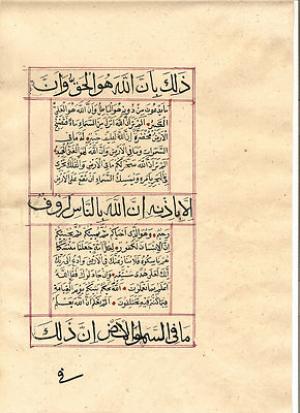 ذلك بأن الله هو الحق وأن
ما يدعون من دونه هو الباطل وأن الله هو العلي
الكبير ألم تر أن الله أنزل من السماء ماء فتصبح
الأرض مخضرة إن الله لطيف خبير له ما في
السموات وما في الأرض وإن الله لهو الغني الحميد
ألم تر أن الله سخر لكم ما في الأرض والفلك تجري
في البحر بأمره ويمسك السماء أن تقع على الأرض
إلا بإذنه إن الله بالناس لرؤف
رحيم وهو الذي أحياكم ثم يميتكم ثم يحييكم
إن الإنسان لكفور لكل أمة جعلنا منسكا
هم ناسكوه فلا ينازعنك في الأمر وادع إلى ربك
إنك لعلى هدى مستقيم وإن جادلوك فقل الله
أعلم بما تعملون الله يحكم بينكم يوم القيامة
فيما كنتم فيه تختلفون ألم تعلم أن الله يعلم
ما في السماء والأرض إن ذلك
في